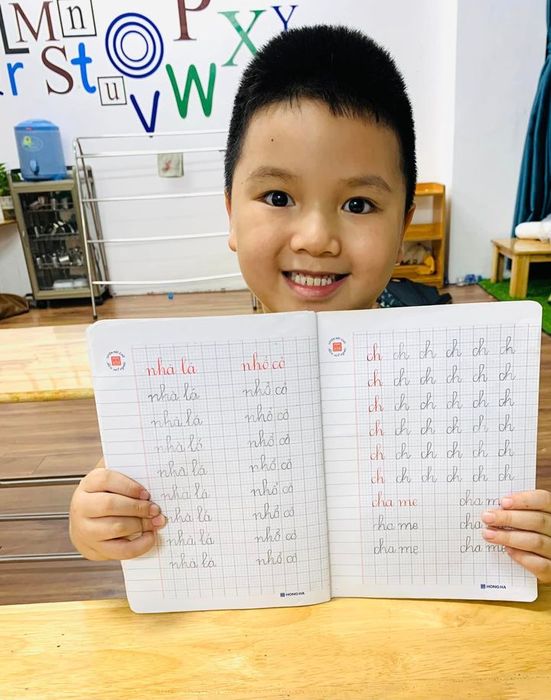 nhà lá nhỏ cỏ
nhà lá nhỏ cỏ
nhà lá nhỏ cỏ
nhà lá nhỏ cỏ
nhà lá nhỏ cỏ
nhà lá nhỏ cỏ
nhà lá nhỏ cỏ
nhà lá nhỏ cỏ
nhà lá nhỏ cỏ
HONG HA
ch ch ch ch ch ch
ch ch ch ch ch ch
ch ch ch ch ch ch
ch ch ch ch ch ch
ch ch ch ch ch ch
ch ch ch ch ch ch
cha mẹ cha mẹ
cha mẹ cha mẹ
cha mẹ cha mẹ
HONG HA